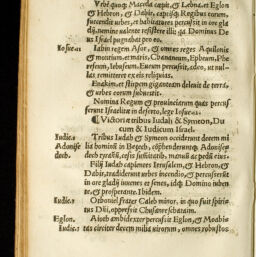 Vrbē quoq; Maceda cœpit, & Lebna, et Eglon
& Hebron, & Dabir, captisq; Regibus eorum,
succendit vrbes, et habitatores percussit in ore gla
dij, nemine valente resistere illi: q̄a Dominus De
us Israel pugnabat pro eo.
Iosue.11 Iabin regem Asor, & omnes reges Aquilonis
& montium, et maris, Chananeum, Ephrum, Phe
reseum, Iebuseum, Eueum percussit, adeo, ut nul
las remitteret ex eis reliquias.
Enakim, et stirpem giganteam deleuit de terra,
& urbes eorum subuertit.
Nomina Regum & prouinciarum quas percus
serunt Israelitæ in deserto, lege Iosue.12
¶ Victoriæ tribus Iudah & Symeon, Du
cum & Iudicum Israel.
Iudic.1 Tribus Iudah & Symeon occiderunt decem mi
Adonise lia hominū in Bezech, apprehenderuntq; Adonisedech
dech. tyrannū, cæsis summitatib. manuū ac pedū eius.
Filij Iudah capientes Ierusalem, & Hebron, &
Dabir, tradiderunt urbes incendio, & percusserūt
in ore gladij homines et senes, idq; Domino iuben
te, & prosperante. Ibidem.
Iudic.3 Othoniel frater Caleb minor, in quo fuit spiritus
Dñi, oppressit Chusanrasathaim.
Eglon. Aioth ambidexter percussit Eglon, & Moabi
Iudic.3 tas circiter decem milia virorum, omnes robustos